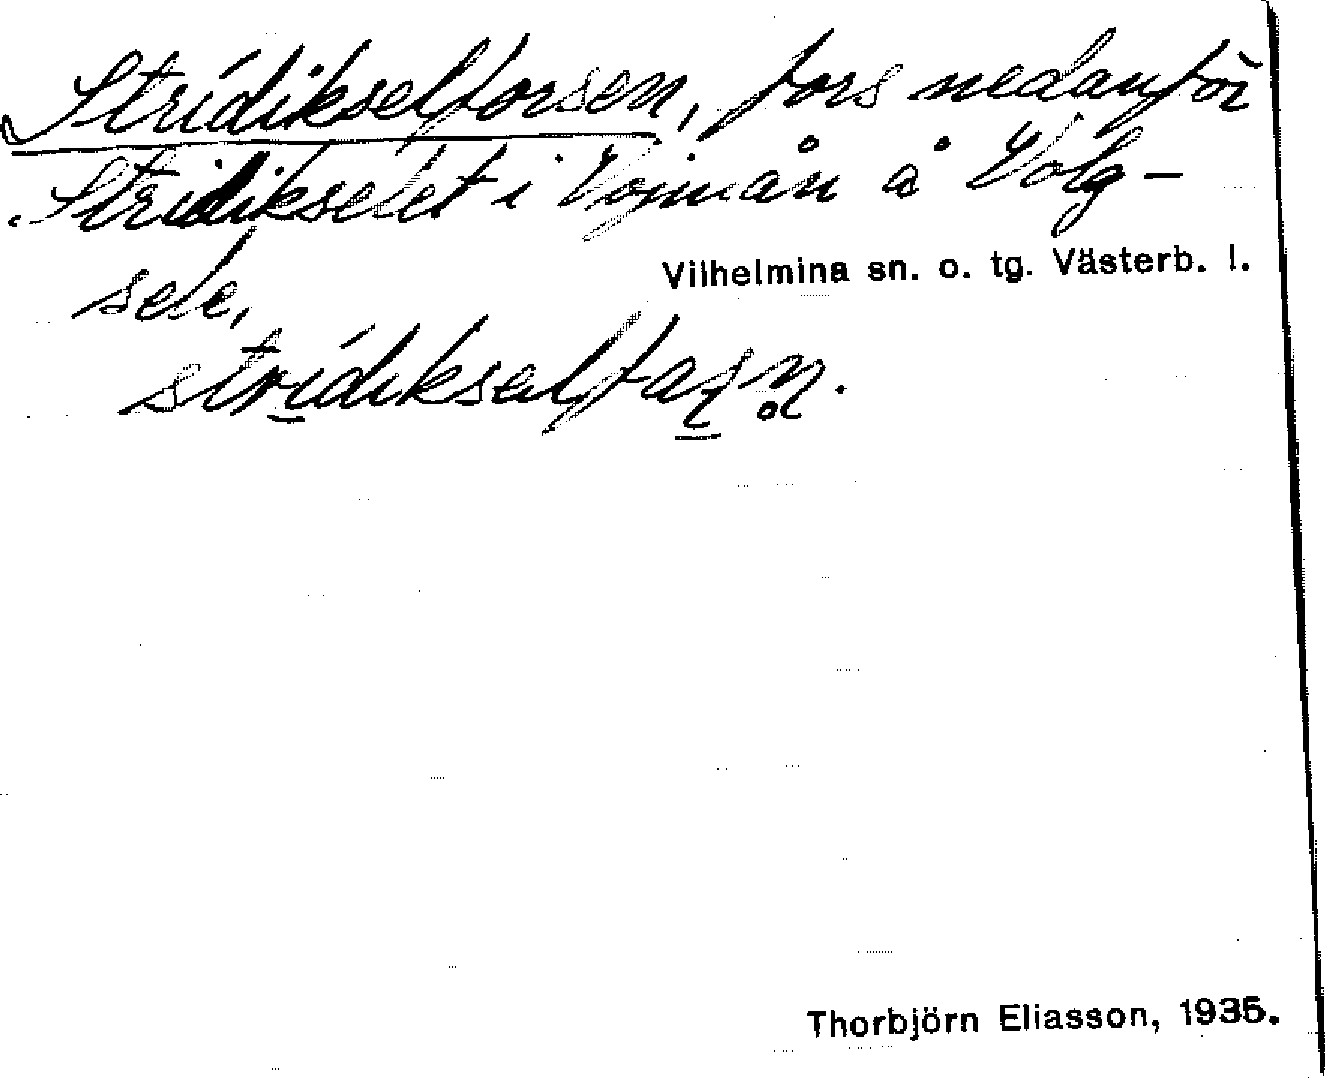 Strídikselforsen, fors nedanför
Stridikselet i Vojmån å Volg-
sele,
Vilhelmina sn. o. tg. Västerb. l.
strídikselfaʂn̥.
Thorbjörn Eliasson, 1935.